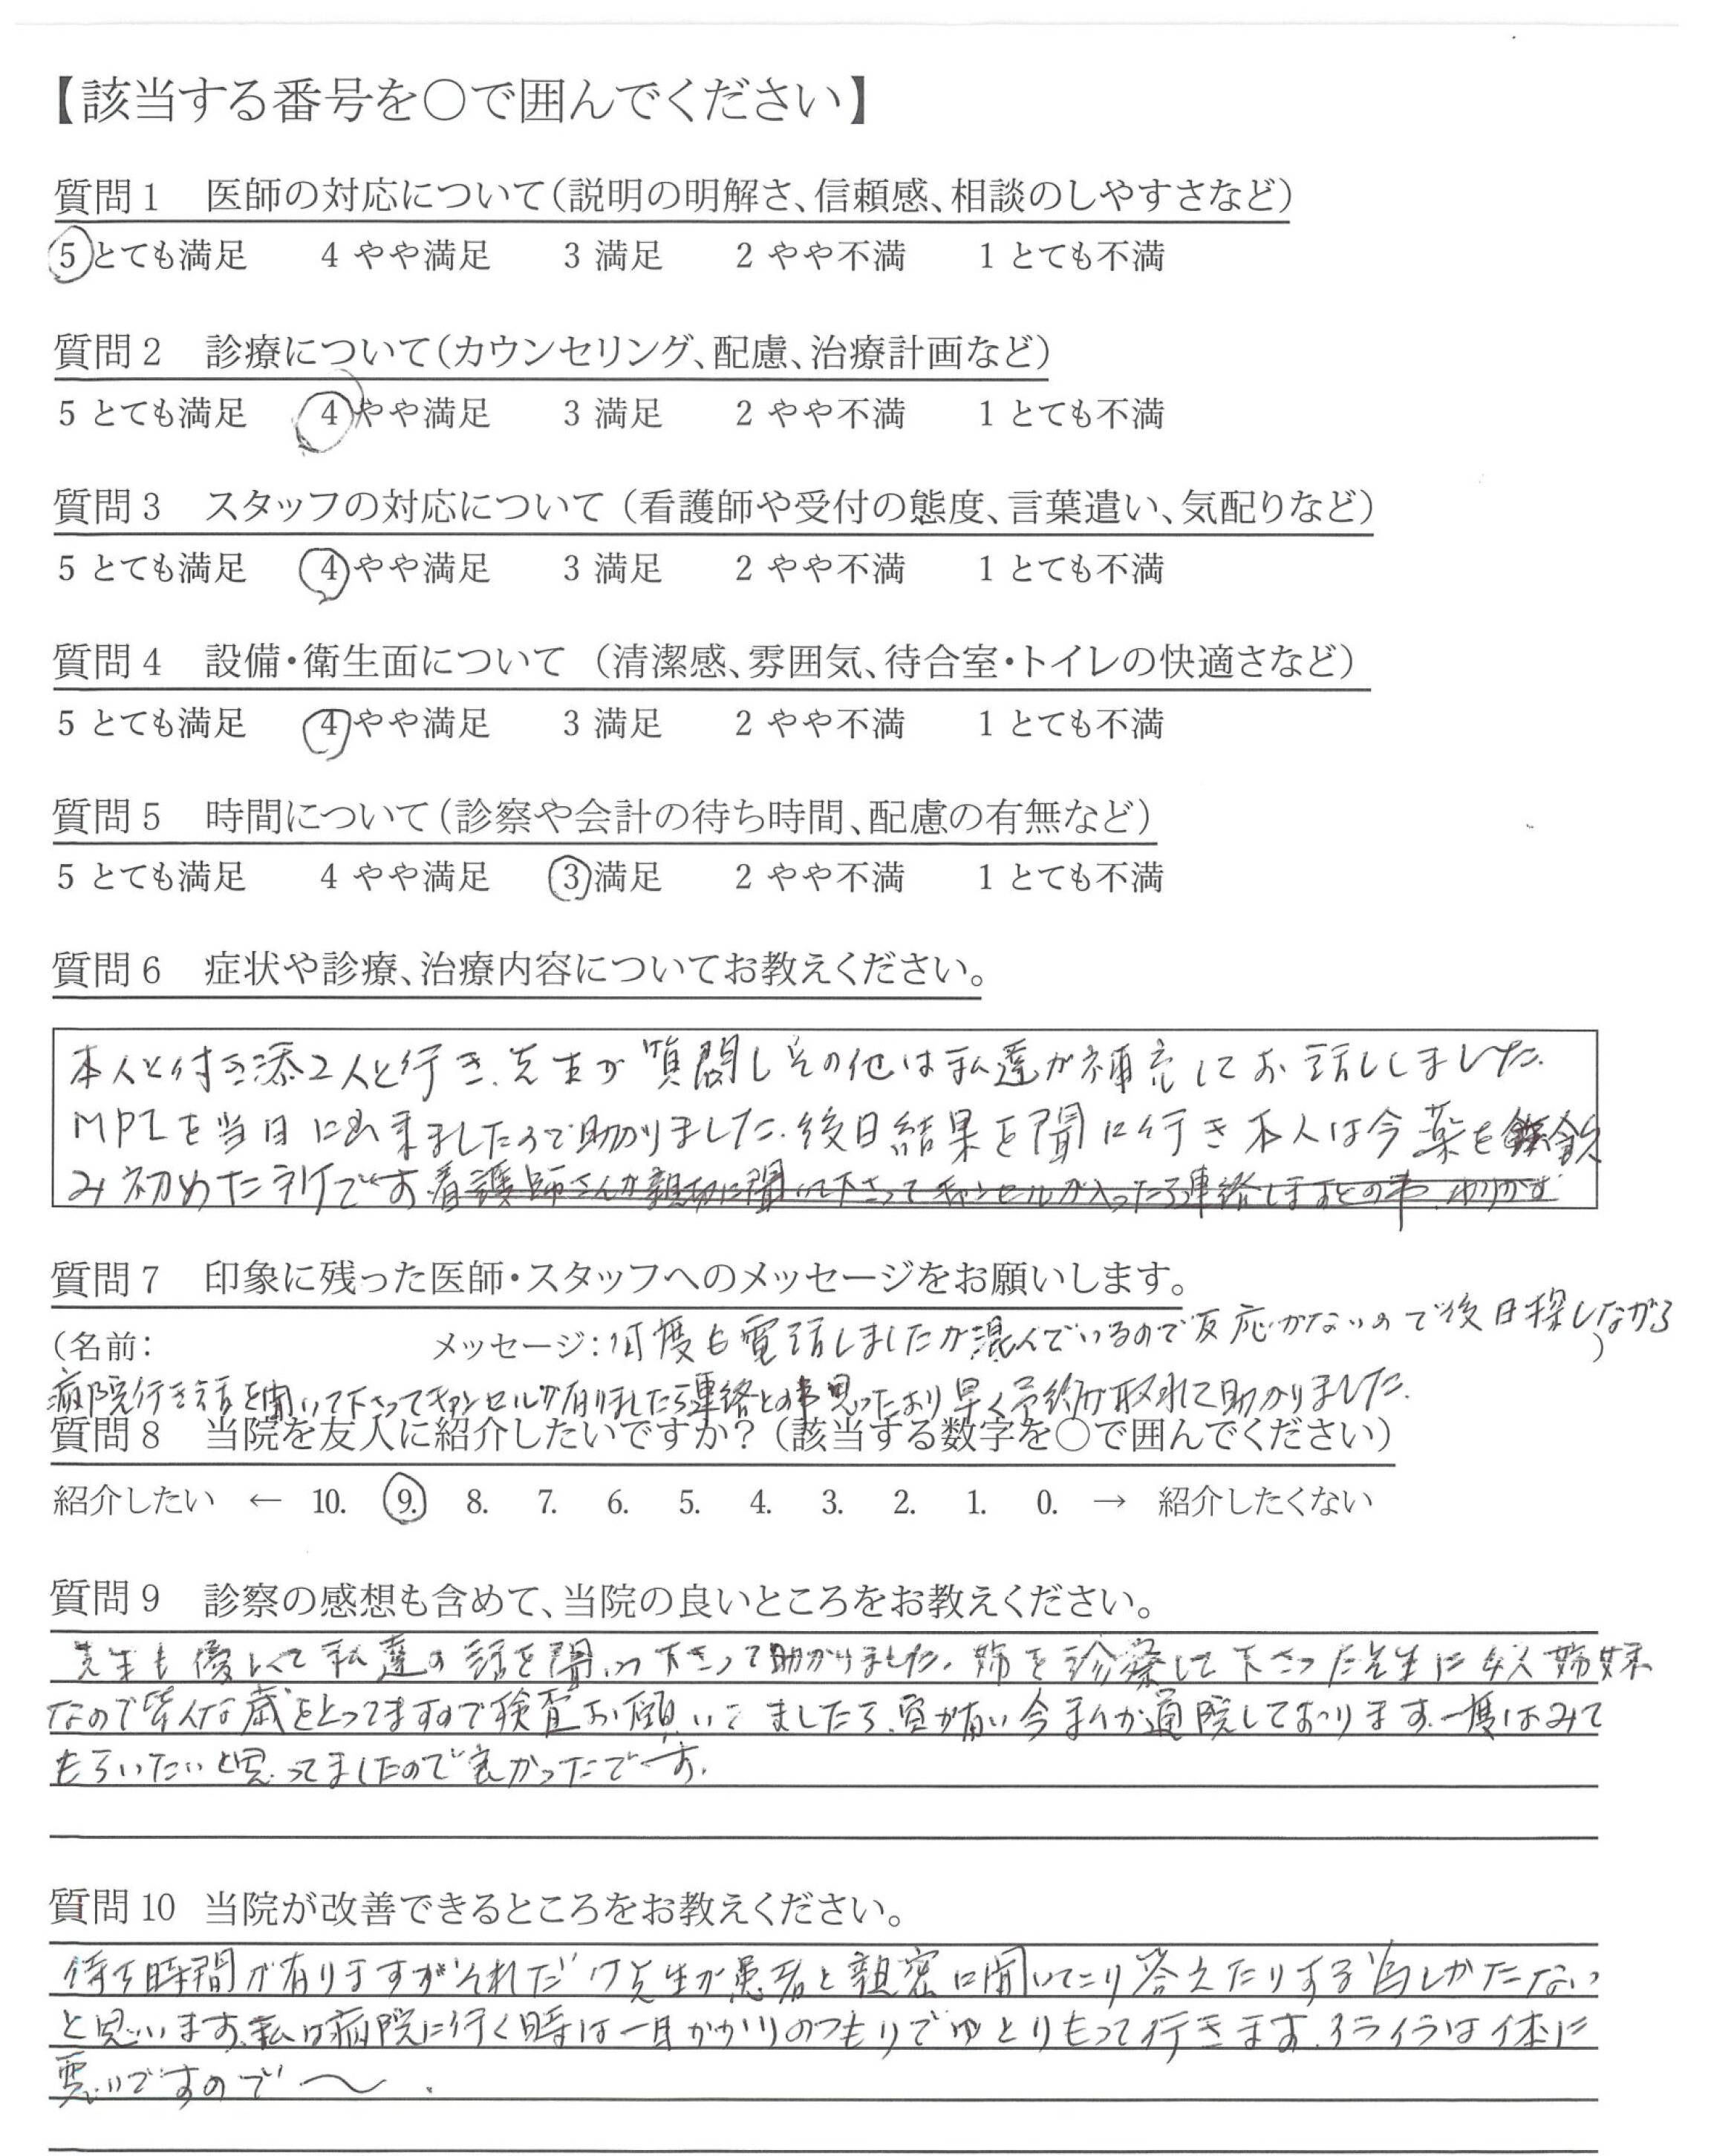 【該当する番号を○で囲んでください】
質問1 医師の対応について(説明の明解さ、信頼感、相談のしやすさなど)
5 とても満足 4 やや満足 3 満足 2 やや不満 1 とても不満
質問2 診療について(カウンセリング、配慮、治療計画など)
5 とても満足 4 やや満足 3 満足 2 やや不満 1 とても不満
質問3 スタッフの対応について(看護師や受付の態度、言葉遣い、気配りなど)
5 とても満足 4 やや満足 3 満足 2 やや不満 1 とても不満
質問4 設備・衛生面について(清潔感、雰囲気、待合室・トイレの快適さなど)
5 とても満足 4 やや満足 3 満足 2 やや不満 1 とても不満
質問5 時間について(診察や会計の待ち時間、配慮の有無など)
5 とても満足 4 やや満足 3 満足 2 やや不満 1 とても不満
質問6 症状や診療、治療内容についてお教えください。
本人と付き添2人と行き、先生が質問しその他は私達が補充してお話ししました。
を当日に出来ましたので助かりました。後日結果を聞に行き本人は今薬を飲
み初めた所です看護師さんが親切に聞いて下さってキャンセルが入ったら連絡しますとの事
質問7 印象に残った医師・スタッフへのメッセージをお願いします。
(名前: メッセージ:何度も電話しましたが混んでいるので反応がないので後日探しながら)
病院行き話を聞いて下さってキャンセルが有りましたら連絡との事思ったより早く予約が取れて助かりました。
質問8 当院を友人に紹介したいですか?(該当する数字を○で囲んでください)
紹介したい ← 10. 9. 8. 7. 6. 5. 4. 3. 2. 1. 0. → 紹介したくない
質問9 診察の感想も含めて、当院の良いところをお教えください。
先生も優しくて私達の話を聞いて下さって助かりました。姉を診察して下さった先生に4人姉妹
なので皆んな歳をとってますので検査お願いしましたら、 今 通院しております。一度はみて
もらいたいと思ってましたので良かったです。
質問10 当院が改善できるところをお教えください。
待ち時間が有りますがそれだけ先生が患者と親密に聞いてり答えたりする しかたない
と思います、私は病院に行く時は一日がかりのつもりでゆとりもって行きます。イライラは体に
悪いですので〜.